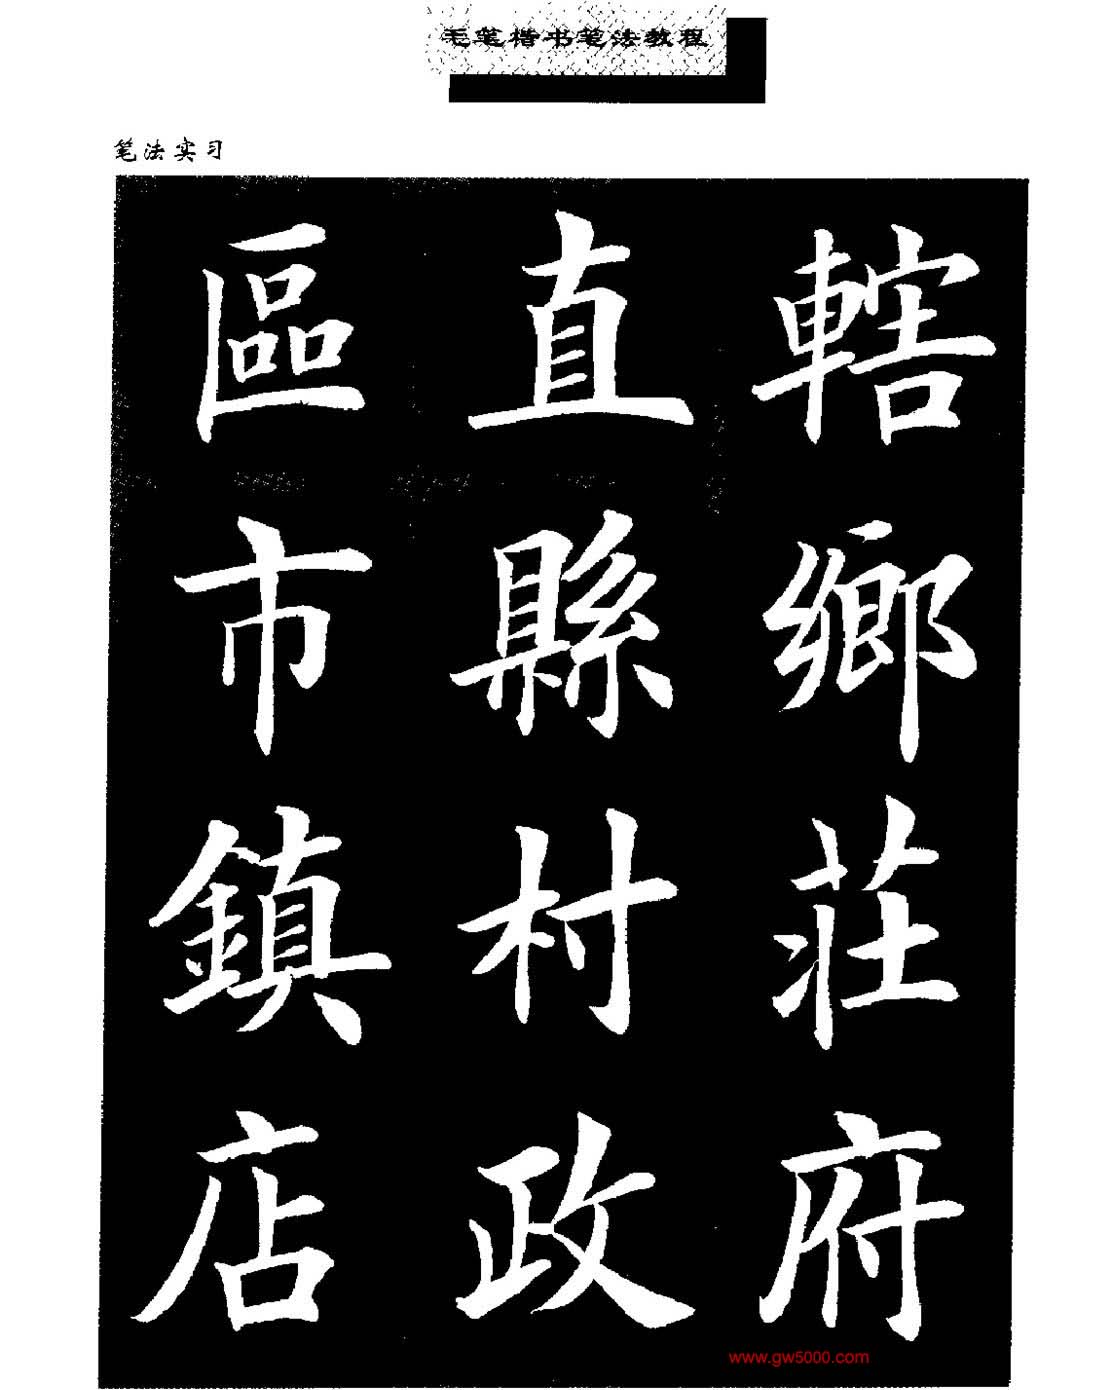 毛笔楷书笔法教程
笔法实习
區直轄
市縣鄉
鎮村莊
店政府
www.gw5000.com